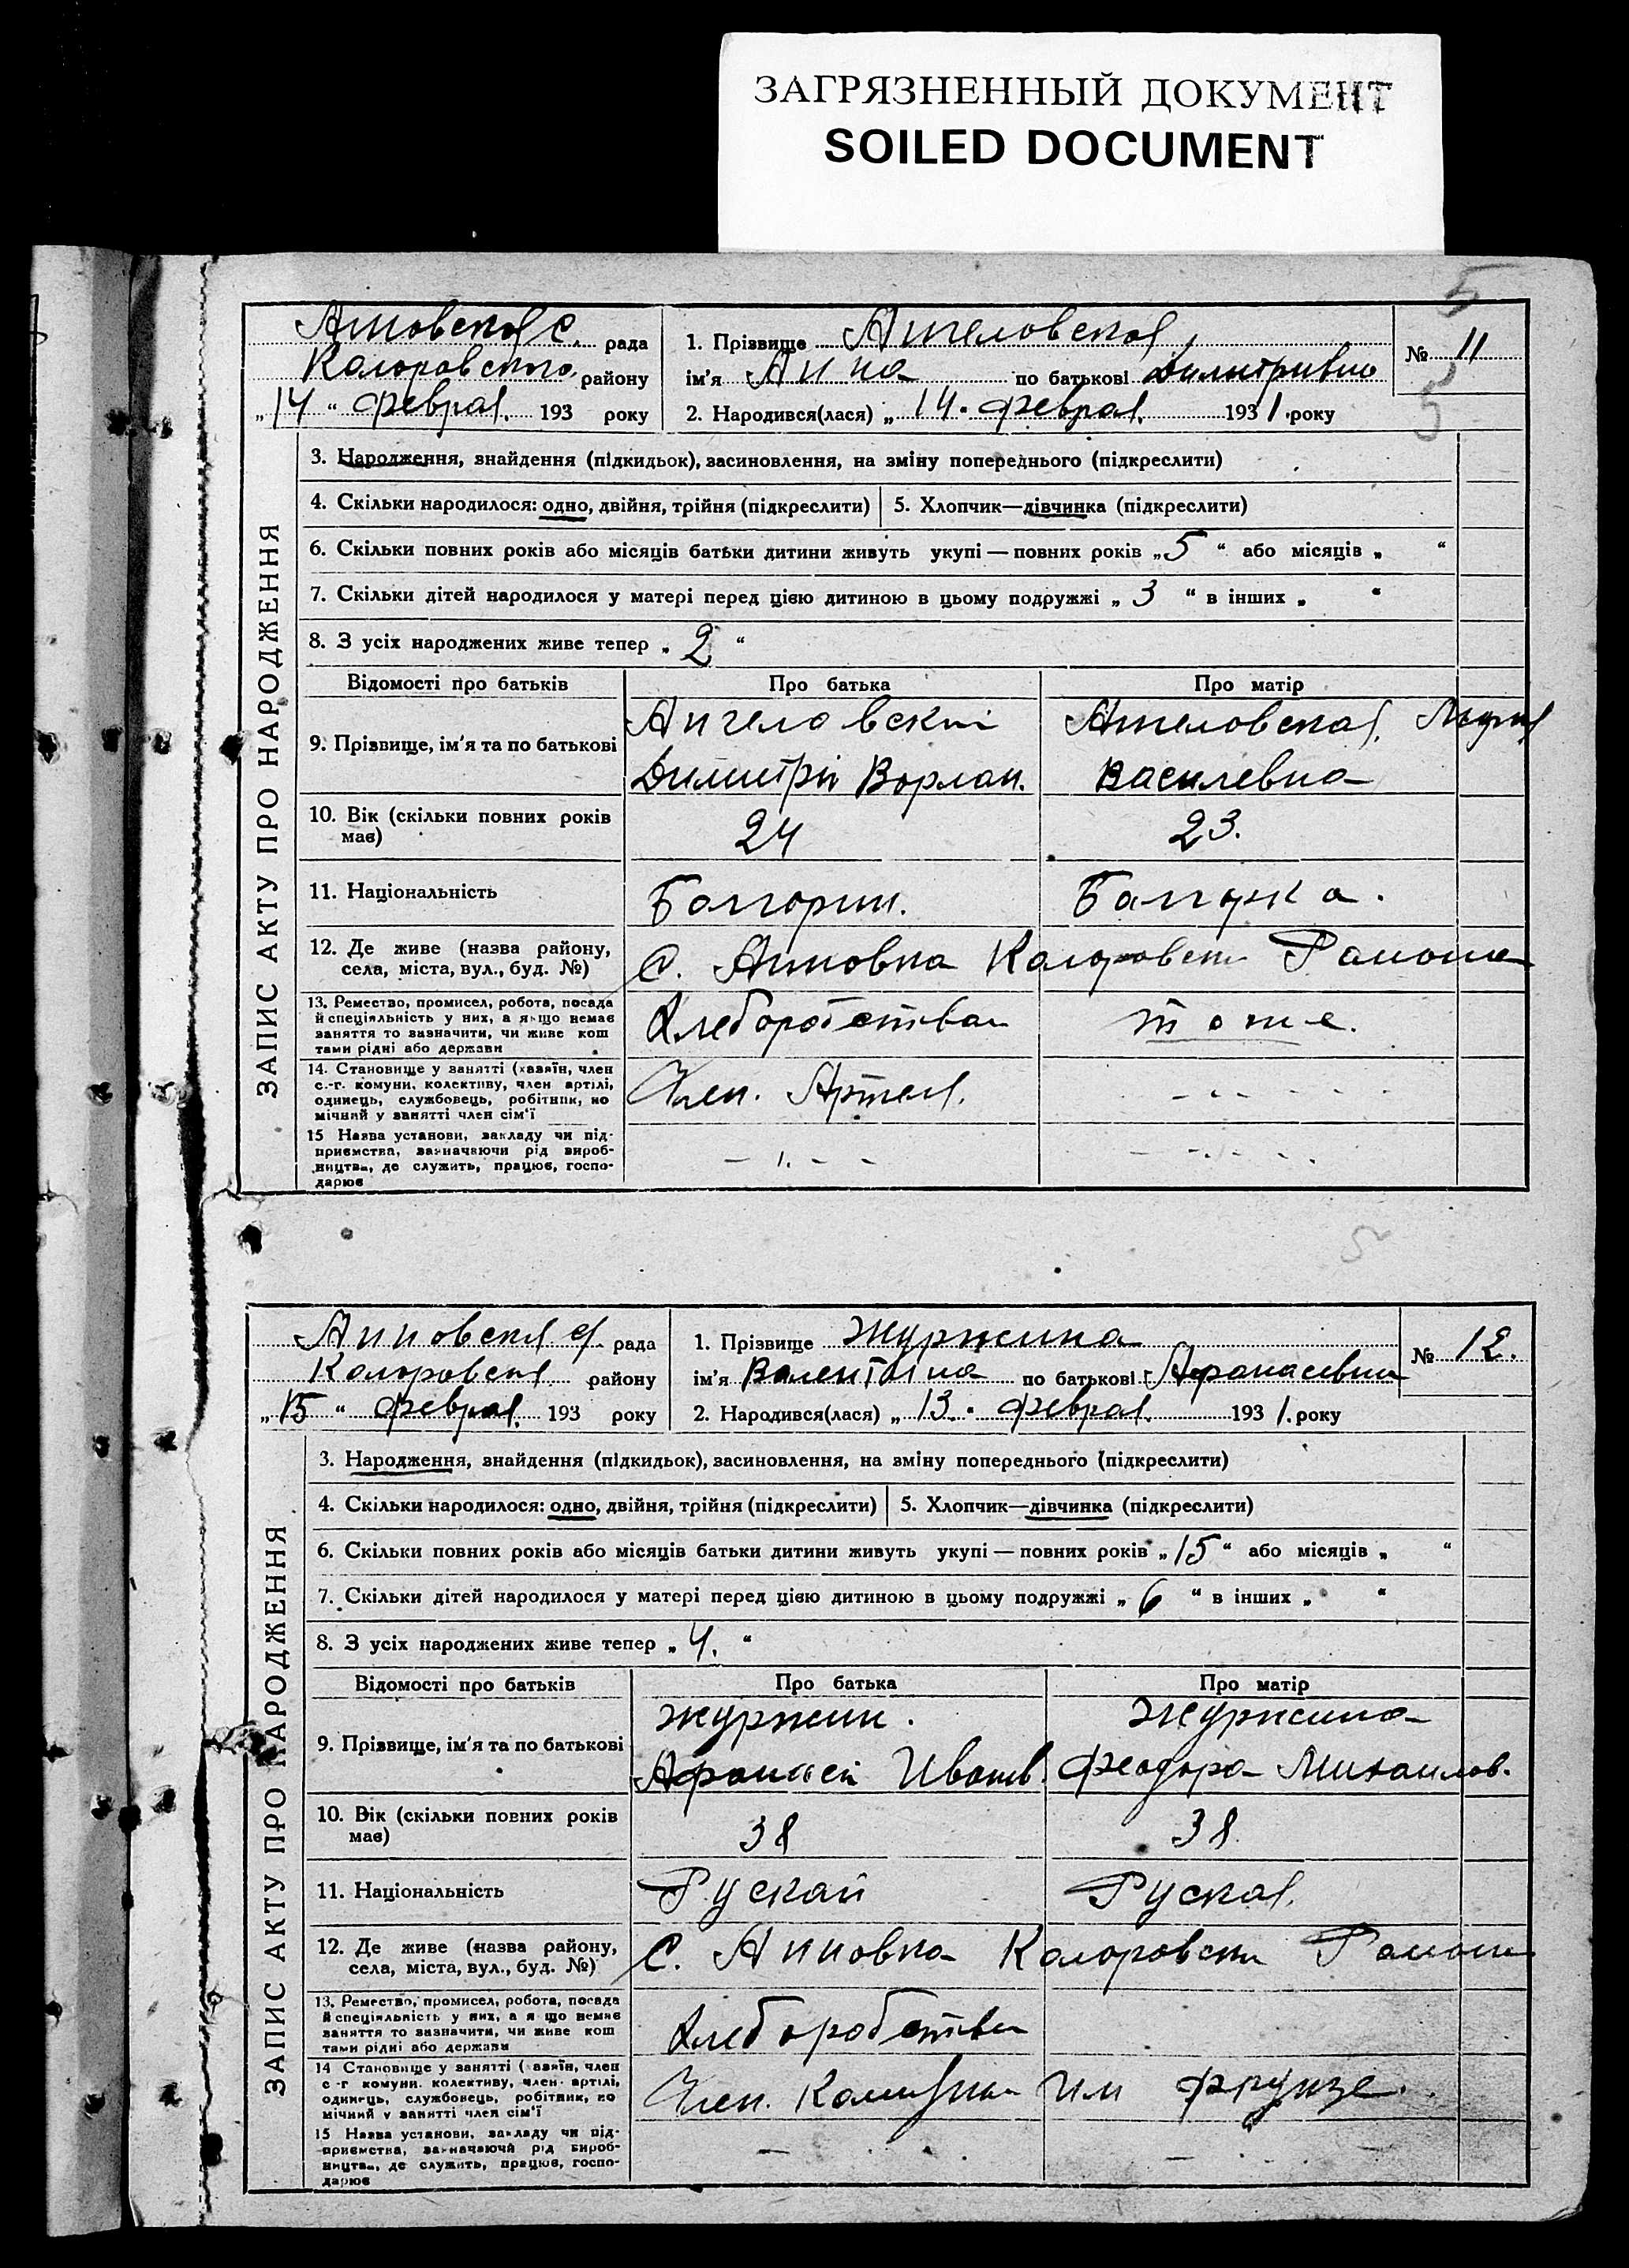 ЗАГРЯЗНЕННЫЙ ДОКУМЕНТ
SOILED DOCUMENT
5
Анновской С. рада
Коларовского району
„14“ феврал. 193 року
1. Прізвище Ангеловская
ім'я Анна по батькові Димитривна
2. Народився(лася) „14. феврал. 1931. року
№ 11
5
ЗАПИС АКТУ ПРО НАРОДЖЕННЯ
3. Народження, знайдення (підкидьок), засиновлення, на зміну попереднього (підкреслити)
4. Скільки народилося: одно, двійня, трійня (підкреслити) 5. Хлопчик—дівчинка (підкреслити)
6. Скільки повних років або місяців батьки дитини живуть укупі — повних років „5“ або місяців „ “
7. Скільки дітей народилося у матері перед цією дитиною в цьому подружжі „3“ в інших „ “
8. З усіх народжених живе тепер „2“
Відомості про батьків Про батька Про матір
9. Прізвище, ім'я та по батькові
Ангеловский
Димитрий Ворлан.
Ангеловская. Мария
Василевна
10. Вік (скільки повних років
має)
24 23.
11. Національність Болгорин. Балгарка.
12. Де живе (назва району,
села, міста, вул., буд. №)
С. Анновка Коларовски Район
13. Ремество, промисел, робота, посада
й спеціяльність у них, а якщо немає
заняття то зазначити, чи живе кош
тами рідні або держави
Хлеборобства тоже.
14. Становище у занятті (хазяїн, член
с.-г. комуни, колективу, член артілі,
одинець, службовець, робітник, по
мічний у занятті член сім'ї
Член. Артели.
15 Назва установи, закладу чи під-
приємства, зазначаючи рід вироб-
ництва, де служить, працює, госпо-
дарює
5
Анновской с. рада
Коларовской району
„15“ феврал. 193 року
1. Прізвище Журжина
ім'я Валентина по батькові Афанасевна
2. Народився(лася) „13. феврал. 1931. року
№ 12.
ЗАПИС АКТУ ПРО НАРОДЖЕННЯ
3. Народження, знайдення (підкидьок), засиновлення, на зміну попереднього (підкреслити)
4. Скільки народилося: одно, двійня, трійня (підкреслити) 5. Хлопчик—дівчинка (підкреслити)
6. Скільки повних років або місяців батьки дитини живуть укупі — повних років „15“ або місяців „ “
7. Скільки дітей народилося у матері перед цією дитиною в цьому подружжі „6“ в інших „ “
8. З усіх народжених живе тепер „4.“
Відомості про батьків Про батька Про матір
9. Прізвище, ім'я та по батькові
Журжин.
Афанасий Иванов.
Журжина
Феодора Михаилов.
10. Вік (скільки повних років
має)
38 38.
11. Національність Рускай Руская.
12. Де живе (назва району,
села, міста, вул., буд. №)
С. Анновка Коларовски Район
13. Ремество, промисел, робота, посада
й спеціяльність у них, а якщо немає
заняття то зазначити, чи живе кош
тами рідні або держави
Хлеборобства
14 Становище у занятті (хазяїн, член
с-г комуни, колективу, член артілі,
одинець, службовець, робітник, по
мічний у занятті член сім'ї
Член. Комуны Им Фрунзе.
15 Назва установи, закладу чи під-
приємства, зазначаючи рід вироб-
ництва, де служить, працює, госпо-
дарює